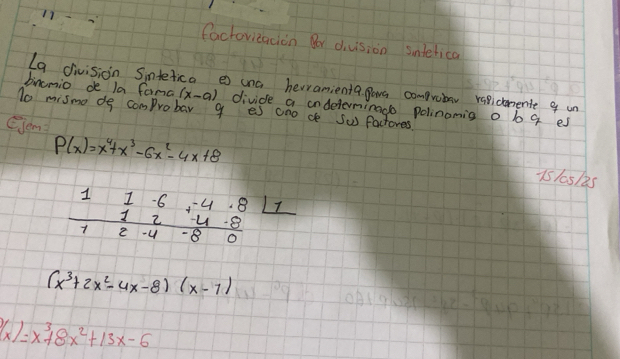 Factorización Por división sintetica
La división Sintetica es una herramienta para comprobar rapidamente q un
binomio de la forma (x-a) divide a un determinado polinomio o b q es
lo mismo de comprobar q es uno de sus factores
Ejem:
P(x)=x⁴+x³-6x²-4x+8
15/05/25
1 1 -6 -4 8 1
1 2 -4 -8
1 2 -4 -8 0
(x³+2x²-4x-8) (x-1)
(x)=x³+8x²+13x-6